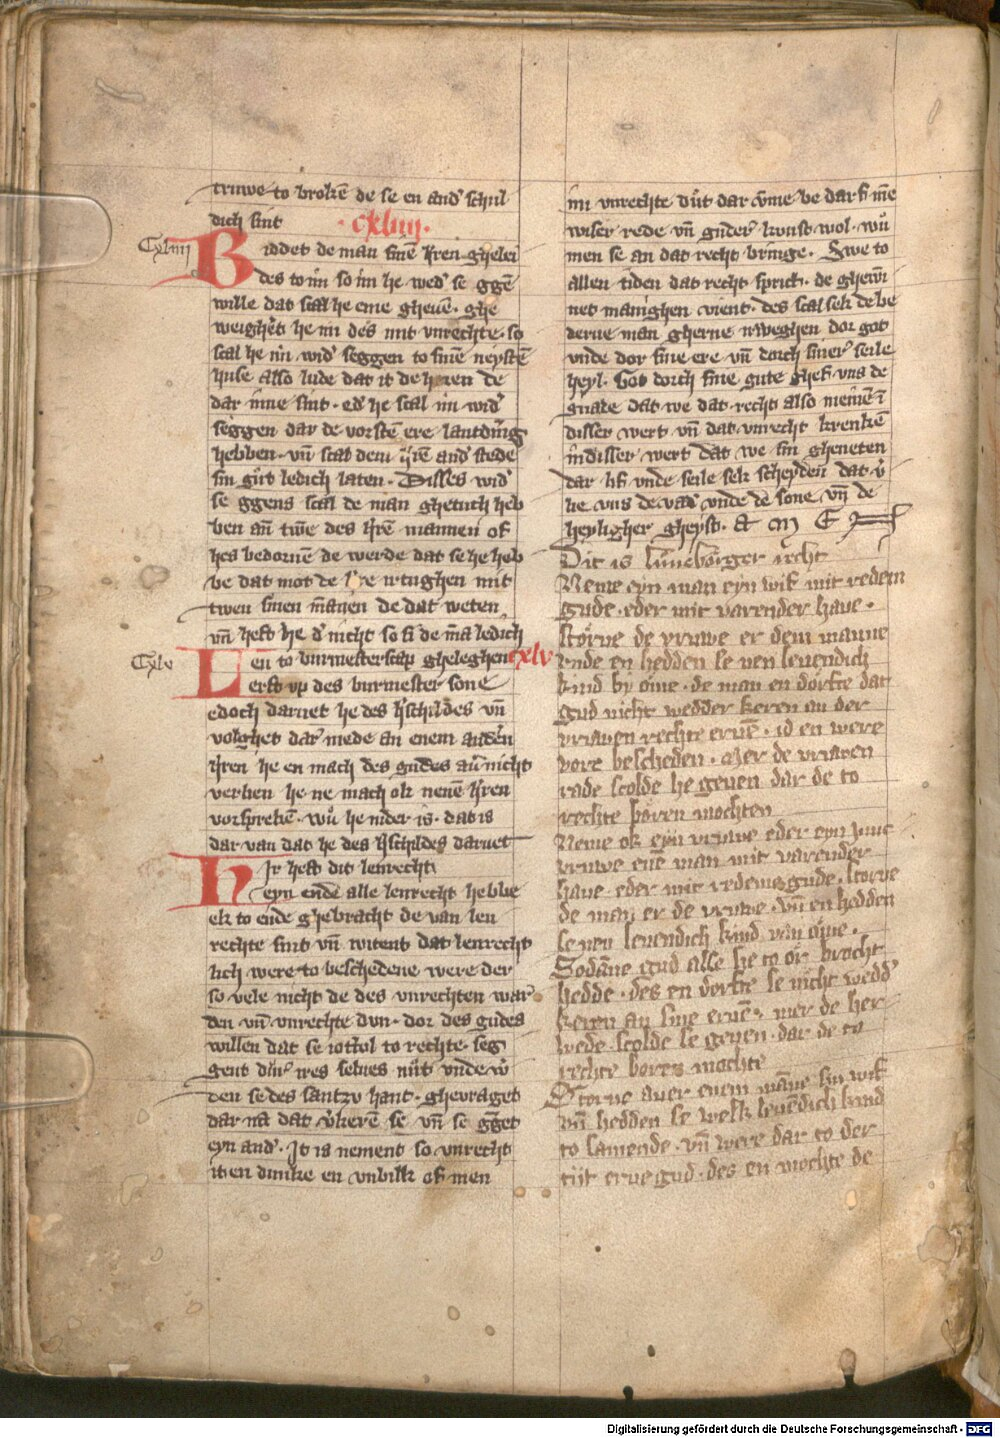 truwe to brokē de se en and' schul
dich sint · cxliiii ·
Cxliiii
Biddet de man sinē h'ren ghelei
des to im so im he wed' se ggē
wille dat scal he eme gheuē · ghe
weighet he im des mit vnrechte · so
scal he im wid' seggen to sinē neystē
huse also lude dat it de horen de
dar inne sint · ed' he scal im wid'
seggen dar de vorstē ere lantding
hebben · vn̄ scal dem h'rē and' stede
sin gůt ledich laten · Disses wid'
se ggens scal de man ghetuch heb
ben an̄ twē des h'rē mannen of
hes bedornē de werde dat se he heb
be dat mot de h're irtughen mit
twen sinen māñen de dat weten
vn̄ heft he d' nicht so si de mā ledich
Cxlv
Len to burmesterscap gheleghen cxlv
erft vp des burmester sone
edoch daruet he des h'schildes vn̄
volghet dar mede an enem andern
h'ren he en mach des gudes au' nicht
verlien he ne mach ok nenē h'ren
vorsprekē · wů he nider is · dat is
dar van dat he des h'schildes daruet
Hir heft dit lenrecht
eyn ende alle lenrecht hebbe
ek to ende ghebracht de van len
rechte sint vn̄ witent dat lenrecht
lich were to beschedene were der
so vele nicht de des vnrechten war
den vn̄ vnrechte dvn · dor des gudes
willen dat se to rechte · seg
gent dūr ires selues nůt vnde w
den se des santzv hant · ghevraget
dar nā dat v'kerē se vn̄ se gget
eyn and' · It is nement so vnrecht
it en dunke en vnbillk of men
im vnrechte důt dar vme be darf mē
wiser rede vn̄ guder kunst wol · wů
men se an dat recht bringe · Swe to
allen tiden dat recht sprict · de ghewī
net manighen vient · des scal sek de be
derue man gherne irweghen dor got
vnde dor sine ere vn̄ dorch siner seile
heyl · Got dorch sine gute ghef vns de
gnade dat we dat recht also meinē ī
disser wert vn̄ dat vnrecht krenkē
in disser wert dat we sin gheneten
dar lif vnde seile sek scheyden dat v'
lie vns de vad' vnde de sone vn̄ de
heyligher gheyst · A M E
Dit is lůneborger recht
Neme eyn man eyn wif mit redem
gude · eder mit varender haue ·
storue de vruwe er dem manne
vnde en hedden se nen leuendich
kind by öme · de man en dorfte dat
gud nicht wedder keren an der
vruwen rechte eruē · id en were
vore bescheden · Mer de vruwen
rade scolde he geuen dar de to
rechte bören mochten
Neme ok eyn vruwe eder eyn junc
vruwe enē man mit varender
haue · eder mit redeme gude · storue
de man er de vruwe · vn̄ en hedden
se nen leuendich kind van öme ·
Sodāne gud alse sie to ör brocht
hedde · des en dorfte se nicht wedd'
keren an sine eruē · mer de her
wede · scolde se geuen · dar de to
rechte boren mochte
Storue auer enem māne sin wif
vn̄ hedden se welk leuēdich kind
to samende · vn̄ were dar to der
tiit erue gud · des en mochte de